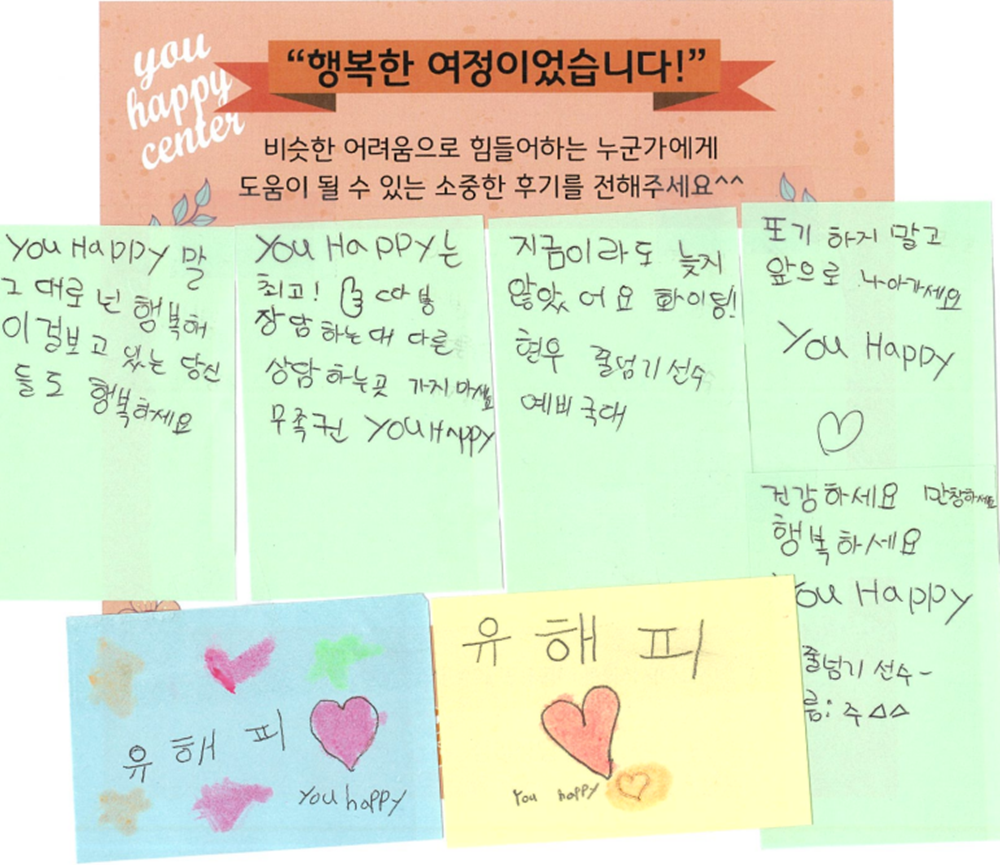 you
happy
center
“행복한 여정이었습니다!”
비슷한 어려움으로 힘들어하는 누군가에게
도움이 될 수 있는 소중한 후기를 전해주세요^^
You Happy 말
그 대로 넌 행복해
이걸보고 있는 당신
들도 행복하세요
You Happy는
최고! 따봉
장담하는대 다른
상담 하는곳 가지마세요
무족권 YOU Happy
지금이라도 늦지
않았어요 화이팅!
현우 줄넘기선수
예비 국대
포기 하지 말고
앞으로 나아가세요
You Happy
건강하세요 만창하세요
행복하세요
You Happy
줄넘기 선수~
름: 주△△
유 해 피
You happy
유 해 피
You happy